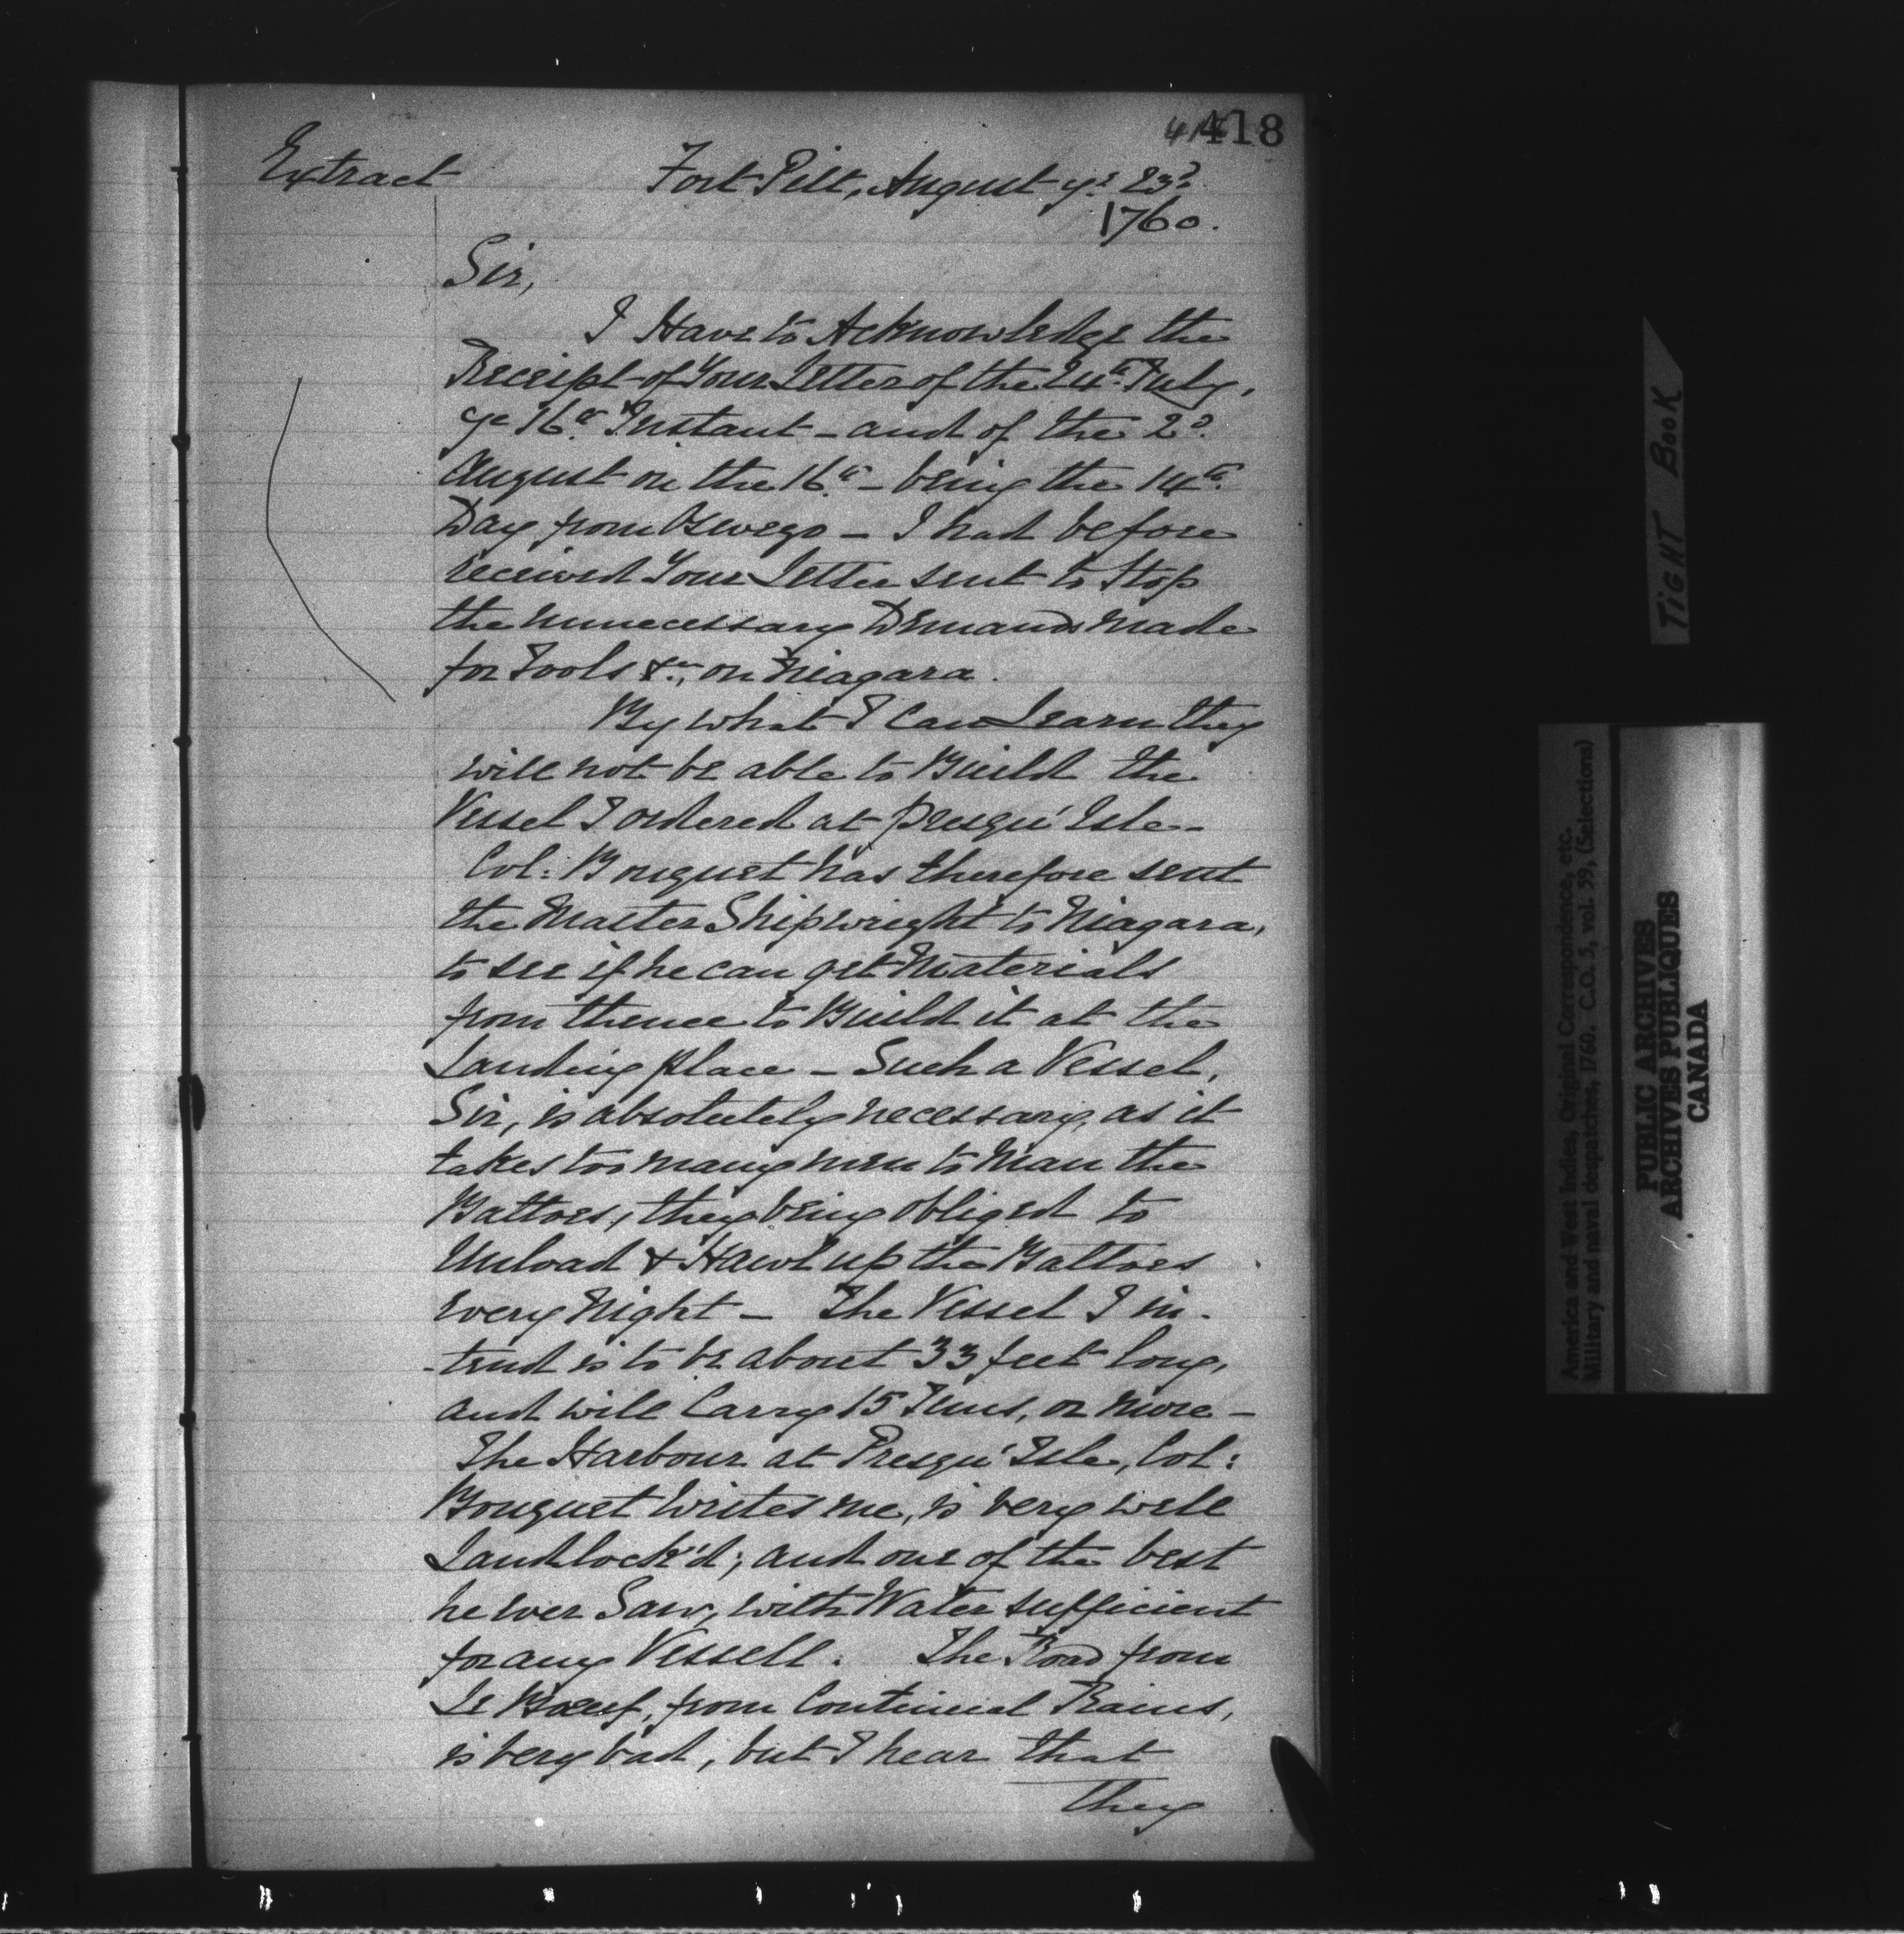 418
Extract Fort Pitt, August ye 23d
1760.
Sir,
I Have to Acknowledge the
Receipt of Your Letter of the 24th July,
ye 16th Instant - and of the 2d
August on the 16th - being the 14th
Day from Oswego - I had before
received Your Letter sent to Stop
the unnecessary Demands made
for Tools &c., on Niagara.
By what I Can Learn they
will not be able to Build the
Vessel I ordered at Presqu'Isle -
Col: Bouquet has therefore sent
the Master Shipwright to Niagara,
to see if he can get Materials
from thence to Build it at the
Landing place - Such a Vessel,
Sir, is absolutely necessary, as it
takes too many men to Man the
Battoes, they being obliged to
Unload & Hawl up the Battoes
every Night - The Vessel I in-
-tend is to be about 33 feet long,
and will Carry 15 Tuns, or more -
The Harbour at Presqu'Isle, Col:
Bouquet writes me, is very well
Landlock'd; and one of the best
he ever Saw, with Water sufficient
for any Vessell. The Road from
Le Boeuf, from Continual Rains,
is very bad, but I hear that
They
TIGHT BOOK
America and West Indies, Original Correspondence, etc.
Military and naval despatches, 1760. C.O. 5, vol. 59, (Selections)
PUBLIC ARCHIVES
ARCHIVES PUBLIQUES
CANADA